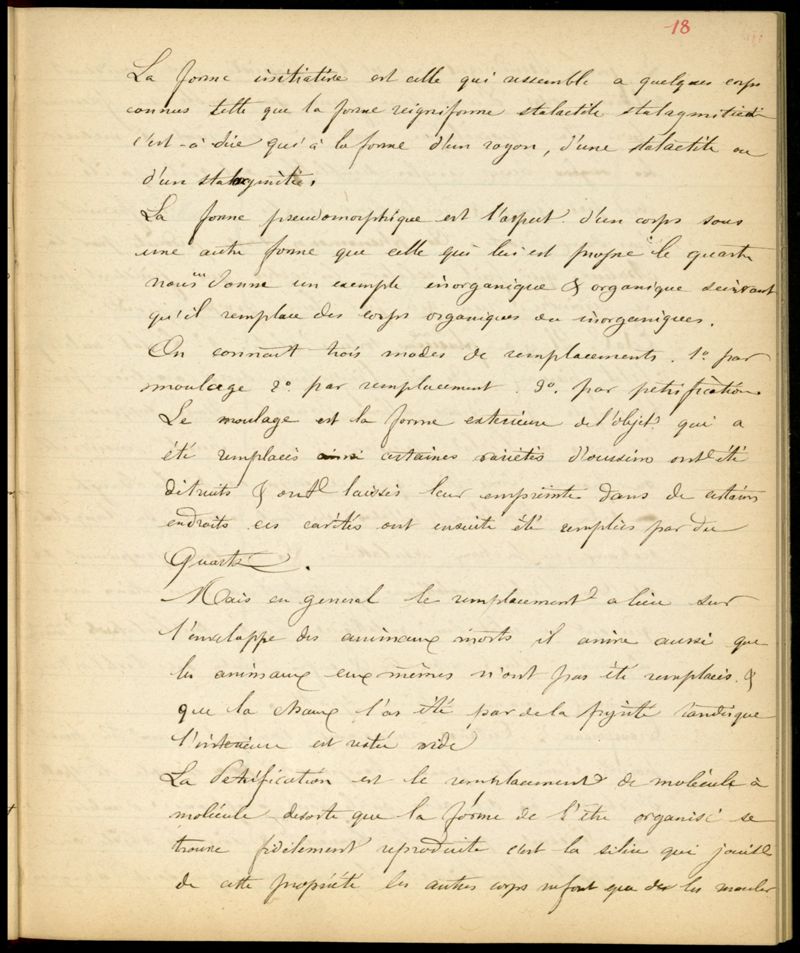 18
La forme initiative est celle qui ressemble a quelques corps
connus telle que la forme stalactite
c'est-à-dire qui à la forme d'un rayon, d'une stalactite ou
d'un
La forme pseudomorphique est l'aspect d'un corps sous
une autre forme que celle qui lui est propre le quartz
nous en donne un exemple inorganique & organique suivant
qu'il remplace des corps organiques ou inorganiques.
On connait trois modes de remplacements. 1º. par
moulage 2º. par remplacement. 3º. par petrification
Le moulage est la forme exterieure de l'objet qui a
été remplacés certaines varietés d'oussins ont été
détruits & ont laissés leur empreinte dans de certains
endroits ces cavités ont ensuite été remplies par du
Quartz.
Mais en general le remplacement a lieu sur
l'enveloppe des animaux morts il arrive aussi que
les animaux eux mêmes n'ont pas été remplacés &
que la chaux l'as été par de la tandisque
l'interieure est restée vide
La Petrification est le remplacement de molécule à
molécule desorte que la forme de l'être organisé se
trouve fidelement reproduite c'est la silice qui jouit
de cette propriété les autres corps nefont que les mouler